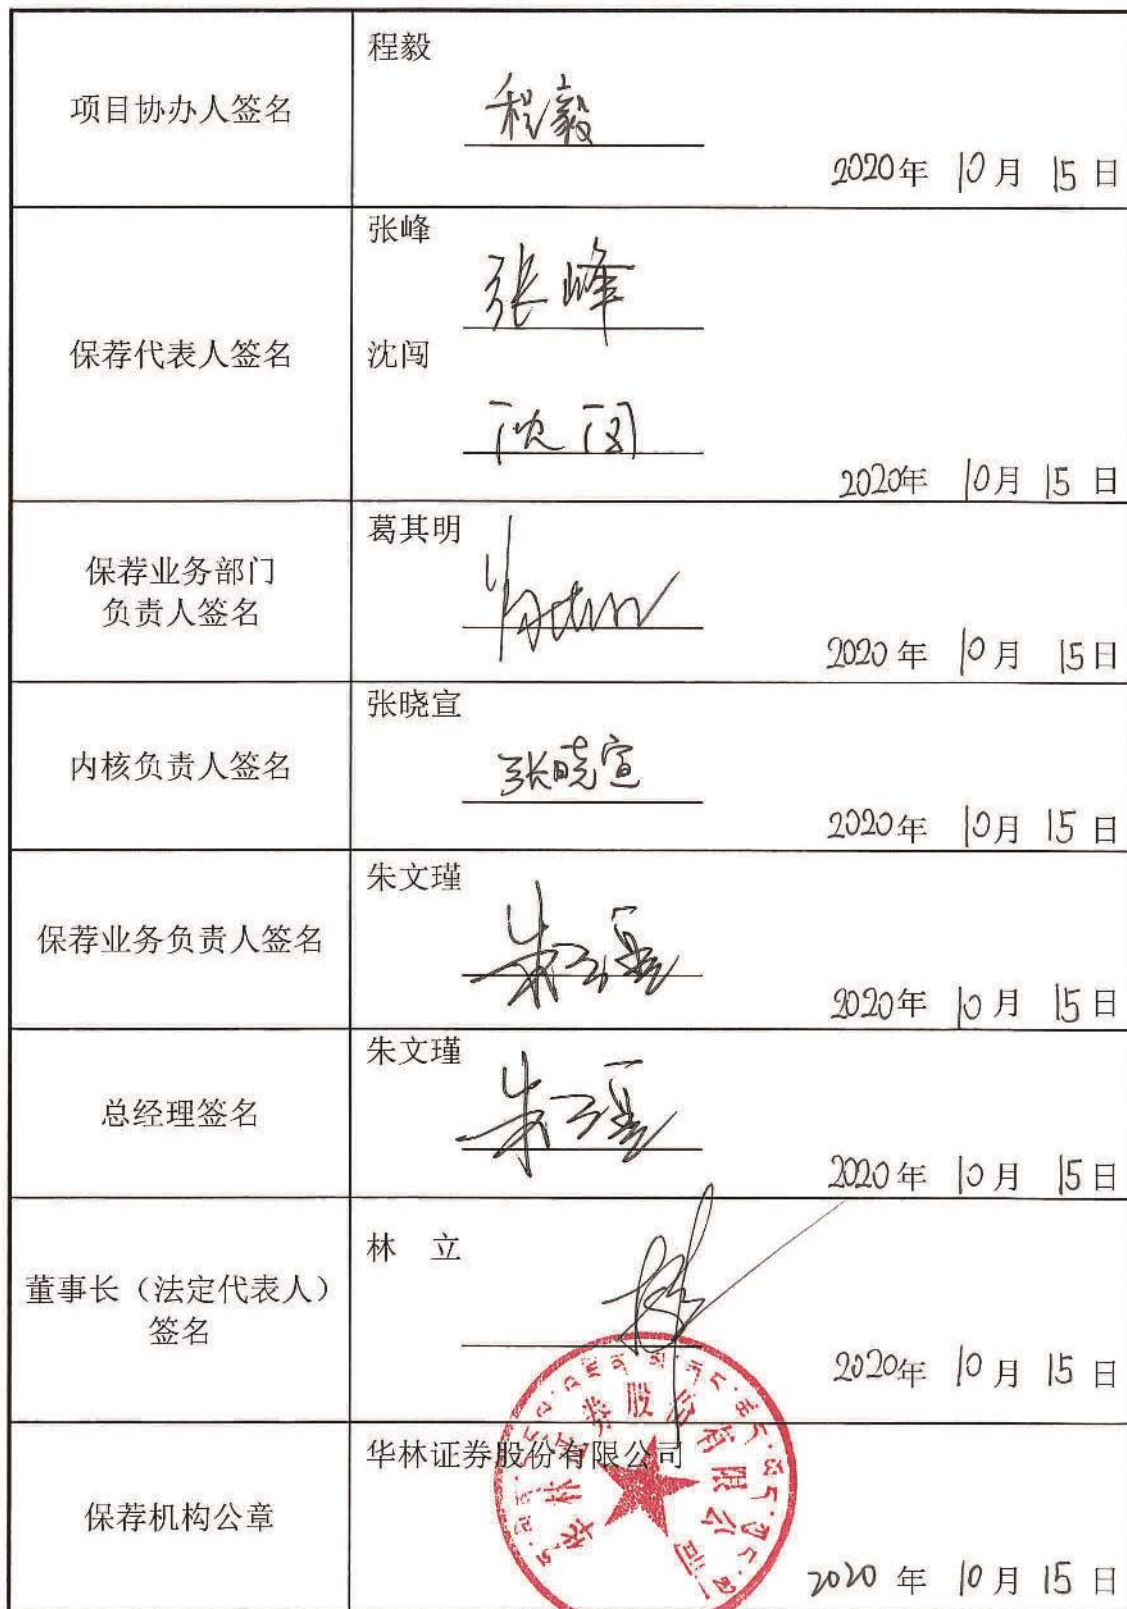 项目协办人签名
程毅
程毅
2020年 10月 15日
保荐代表人签名
张峰
张峰
沈闯
沈闯
2020年 10月 15日
保荐业务部门
负责人签名
葛其明
2020年 10月 15日
内核负责人签名
张晓宣
张晓宣
2020年 10月 15日
保荐业务负责人签名
朱文瑾
朱文瑾
2020年 10月 15日
总经理签名
朱文瑾
朱文瑾
2020年 10月 15日
董事长（法定代表人）
签名
林 立
2020年 10月 15日
保荐机构公章
华林证券股份有限公司
华林证券股份有限公司
2020年 10月 15日